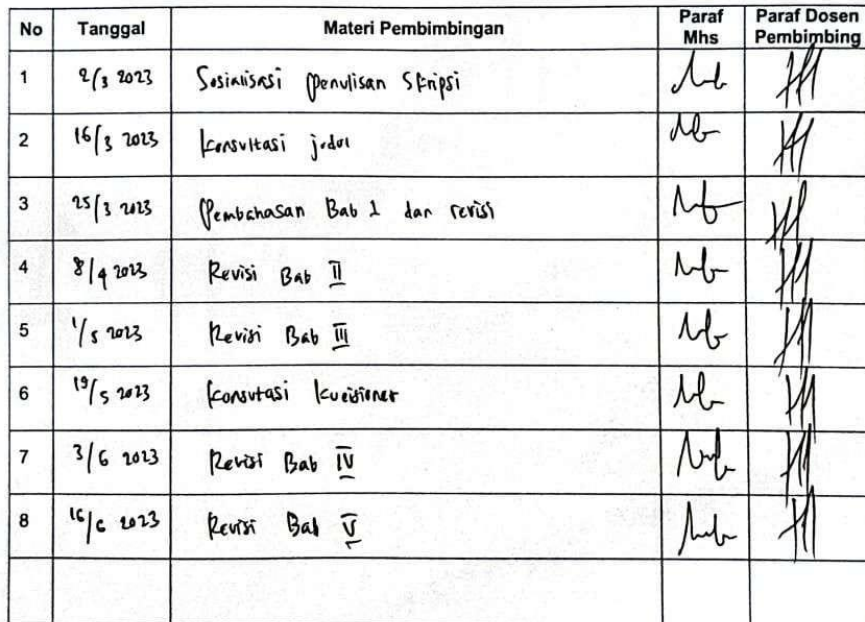 No Tanggal Materi Pembimbingan Paraf Mhs Paraf Dosen Pembimbing
1 2/3 2023 Sosialisasi Penulisan Skripsi
2 16/3 2023 Konsultasi judul
3 25/3 2023 Pembahasan Bab 1 dan revisi
4 8/4 2023 Revisi Bab II
5 1/5 2023 Revisi Bab III
6 19/5 2023 Konsultasi kuesioner
7 3/6 2023 Revisi Bab IV
8 16/6 2023 Revisi Bab V